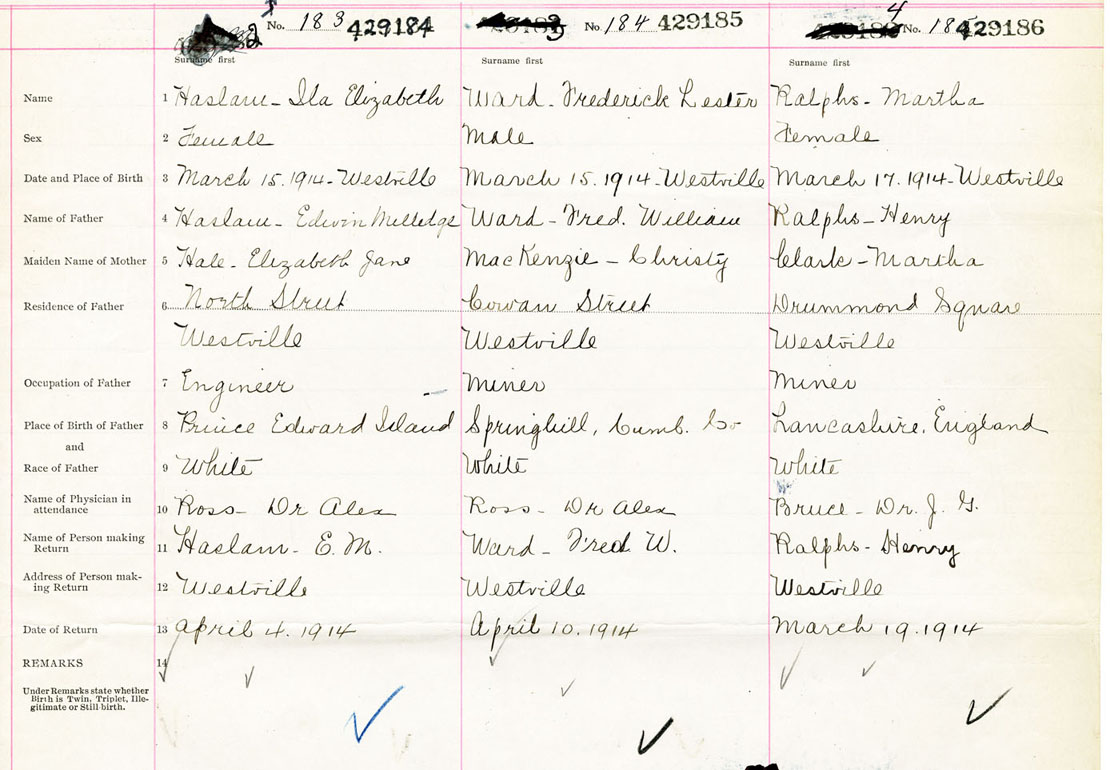 2 No. 183 429184 3 No 184 429185 4 No. 185 429186
Surname first Surname first Surname first
Name 1 Haslam - Ila Elizabeth Ward - Frederick Lester Ralphs - Martha
Sex 2 Female Male Female
Date and Place of Birth 3 March 15. 1914 - Westville March 15. 1914 - Westville March 17. 1914 - Westville
Name of Father 4 Haslam - Edwin Milledge Ward - Fred. William Ralphs - Henry
Maiden Name of Mother 5 Hale - Elizabeth Jane MacKenzie - Christy Clark - Martha
Residence of Father 6 North Street Cowan Street Drummond Square
Westville Westville Westville
Occupation of Father 7 Engineer Miner Miner
Place of Birth of Father 8 Prince Edward Island Springhill, Cumb. Co Lancashire. England
and
Race of Father 9 White White White
Name of Physician in
attendance 10 Ross - Dr Alex Ross - Dr Alex Bruce - Dr. J. G.
Name of Person making
Return 11 Haslam - E. M. Ward - Fred W. Ralphs - Henry
Address of Person mak-
ing Return 12 Westville Westville Westville
Date of Return 13 April 4. 1914 April 10. 1914 March 19. 1914
REMARKS 14
Under Remarks state whether
Birth is Twin, Triplet, Ille-
gitimate or Still-birth.